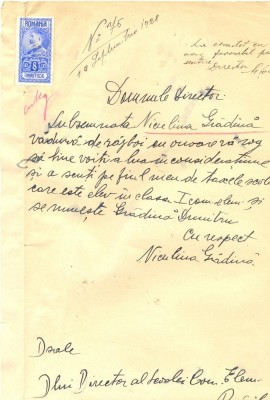 ROMANIA
8
No 215
19 Septembrie 1928
director
Domnule Director
Subsemnata Niculina Grădină
văduvă de război cu onoare vă rog
să bine voiți a lua în considerațiune
și a scuti pe fiul meu de taxele scol
care este elev în clasa I com. elem. și
se numește Grădină Dumitru
Cu respect
Niculina Grădină
Dsale
Dlui Director al Școalei Com. Elem.